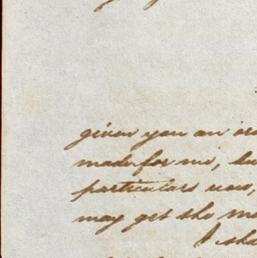 given you an
made for me,
particulars now,
may get the
I